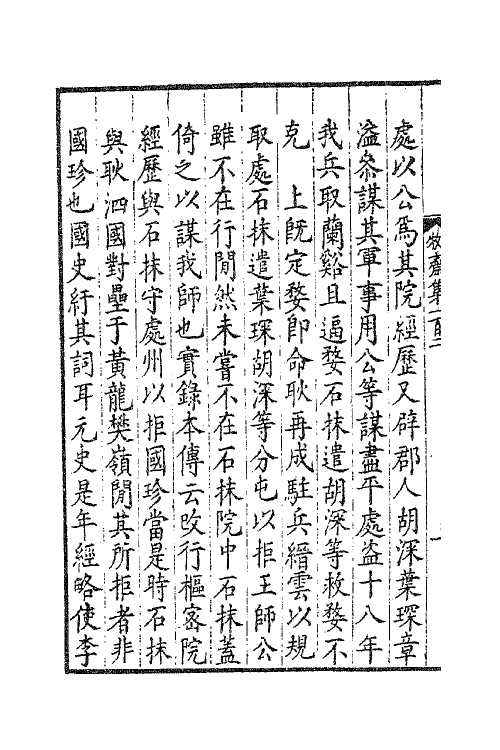 處以公爲其院經歷又辟郡人胡深葉琛章
溢叅謀其軍事用公等謀盡平處盜十八年
我兵取蘭谿且逼婺石抹遣胡深等救婺不
克　上旣定婺卽命耿再成駐兵縉雲以規
取處石抹遣葉琛胡深等分屯以拒王師公
雖不在行閒然未嘗不在石抹院中石抹蓋
倚之以謀我師也實錄本傳云改行樞密院
經歷與石抹守處州以拒國珍當是時石抹
與耿泗國對壘于黃龍樊嶺閒其所拒者非
國珍也國史紆其詞耳元史是年經略使李
牧齋集一百二